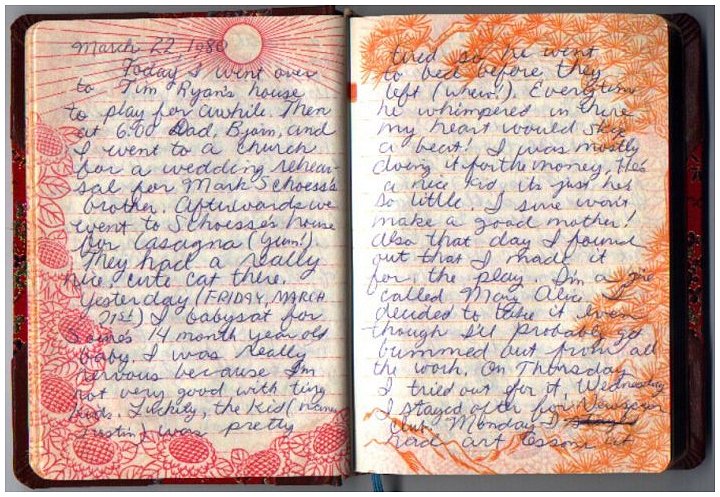 March 22 1980
Today I went over
to Tim Ryan's house
to play for awhile. Then
at 6:00 Dad, Bjorn, and
I went to a church
for a wedding rehear-
sal for Mark Schoesse's
brother. Afterwards we
went to Schoesse's house
for lasagna (yum!)
They had a really
nice cute cat there.
Yesterday (FRIDAY, MARCH
21st) I babysat for
14 month year old
baby. I was really
nervous because I'm
not very good with tiny
kids. Luckily, the kid (name
Justin) was pretty
tired so he went
to bed before they
left (whew!). Everytime
he whimpered in there
my heart would skip
a beat! I was mostly
doing it for the money. He's
a nice kid, it's just he's
so little. I sure won't
make a good mother!
Also that day I found
out that I made it
for the play. I'm a
called Mary Alice. I
decided to take it even
though I'll probably get
bummed out from all
the work. On Thursday
I tried out for it, Wednesday
I stayed after for
club, Monday I
had art lesson at